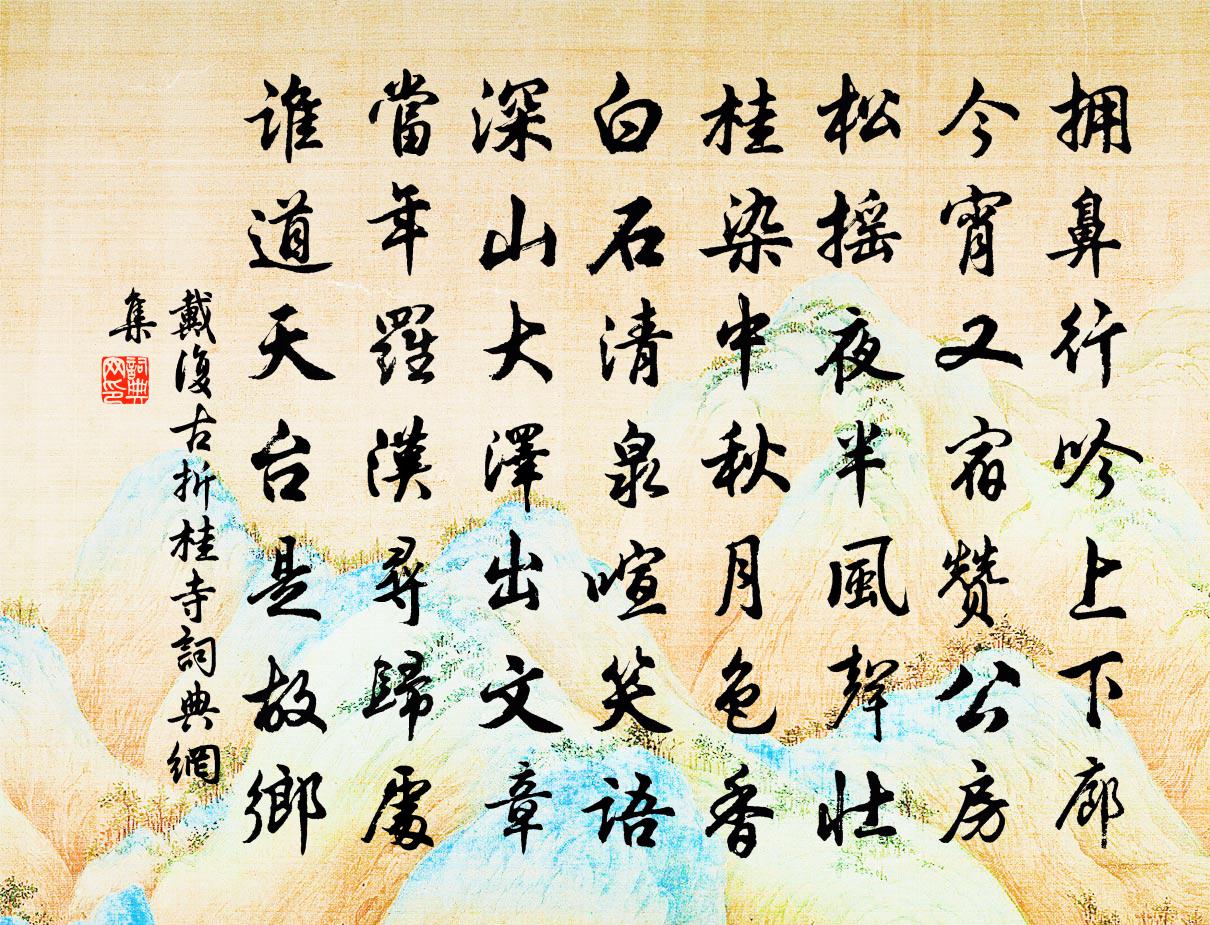 拥鼻行吟上下廊
今宵又宿赞公房
松摇夜半風聲壮
桂染中秋月色香
白石清泉喧笑語
深山大澤出文章
當年羅漢尋歸處
誰道天台是故鄉
戴復古折桂寺詞典網
集
詞典網印